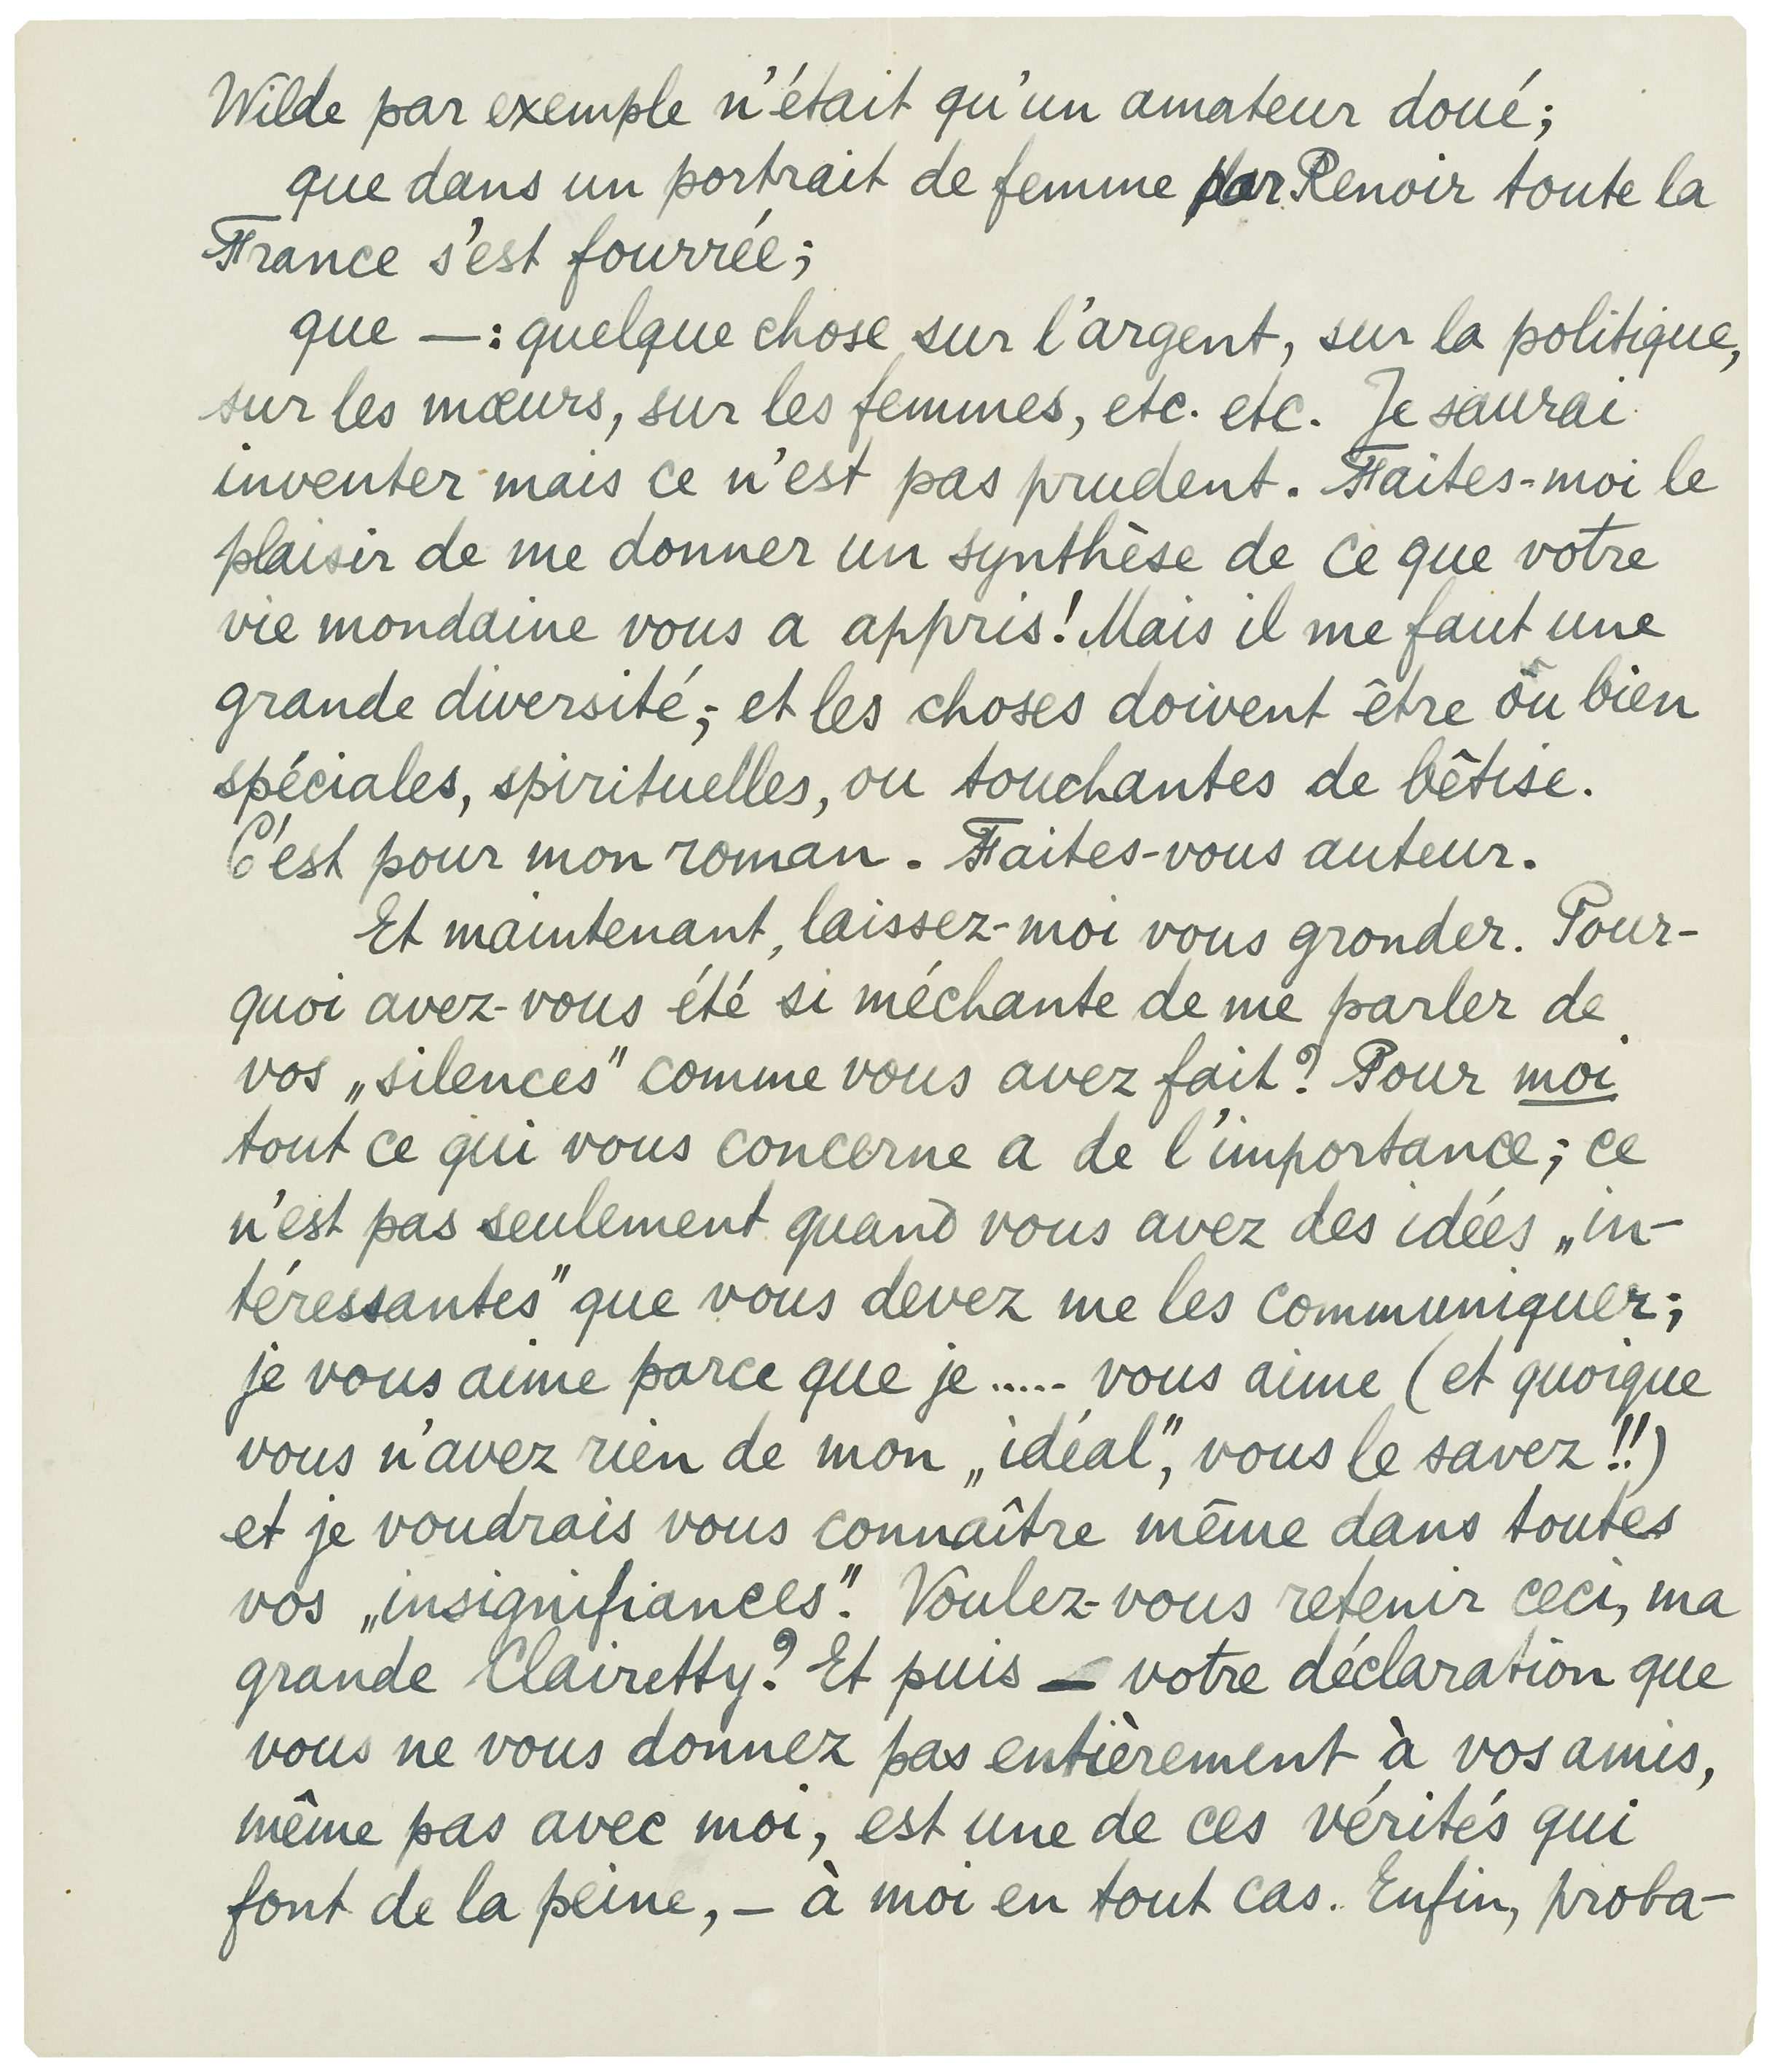 Wilde par exemple n'était qu'un amateur doué;
que dans un portrait de femme par Renoir toute la
France s'est fourrée;
que —: quelque chose sur l'argent, sur la politique,
sur les mœurs, sur les femmes, etc. etc. Je saurai
inventer mais ce n'est pas prudent. Faites-moi le
plaisir de me donner un synthèse de ce que votre
vie mondaine vous a appris! Mais il me faut une
grande diversité; et les choses doivent être ou bien
spéciales, spirituelles, ou touchantes de bêtise.
C'est pour mon roman. Faites-vous auteur.
Et maintenant, laissez-moi vous gronder. Pour-
quoi avez-vous été si méchante de me parler de
vos „silences" comme vous avez fait? Pour moi
tout ce qui vous concerne a de l'importance; ce
n'est pas seulement quand vous avez des idées „in-
téressantes" que vous devez me les communiquer;
je vous aime parce que je ..... vous aime (et quoique
vous n'avez rien de mon „idéal", vous le savez!!)
et je voudrais vous connaître même dans toutes
vos „insignifiances". Voulez-vous retenir ceci, ma
grande Clairetty? Et puis — votre déclaration que
vous ne vous donnez pas entièrement à vos amis,
même pas avec moi, est une de ces vérités qui
font de la peine, — à moi en tout cas. Enfin, proba-